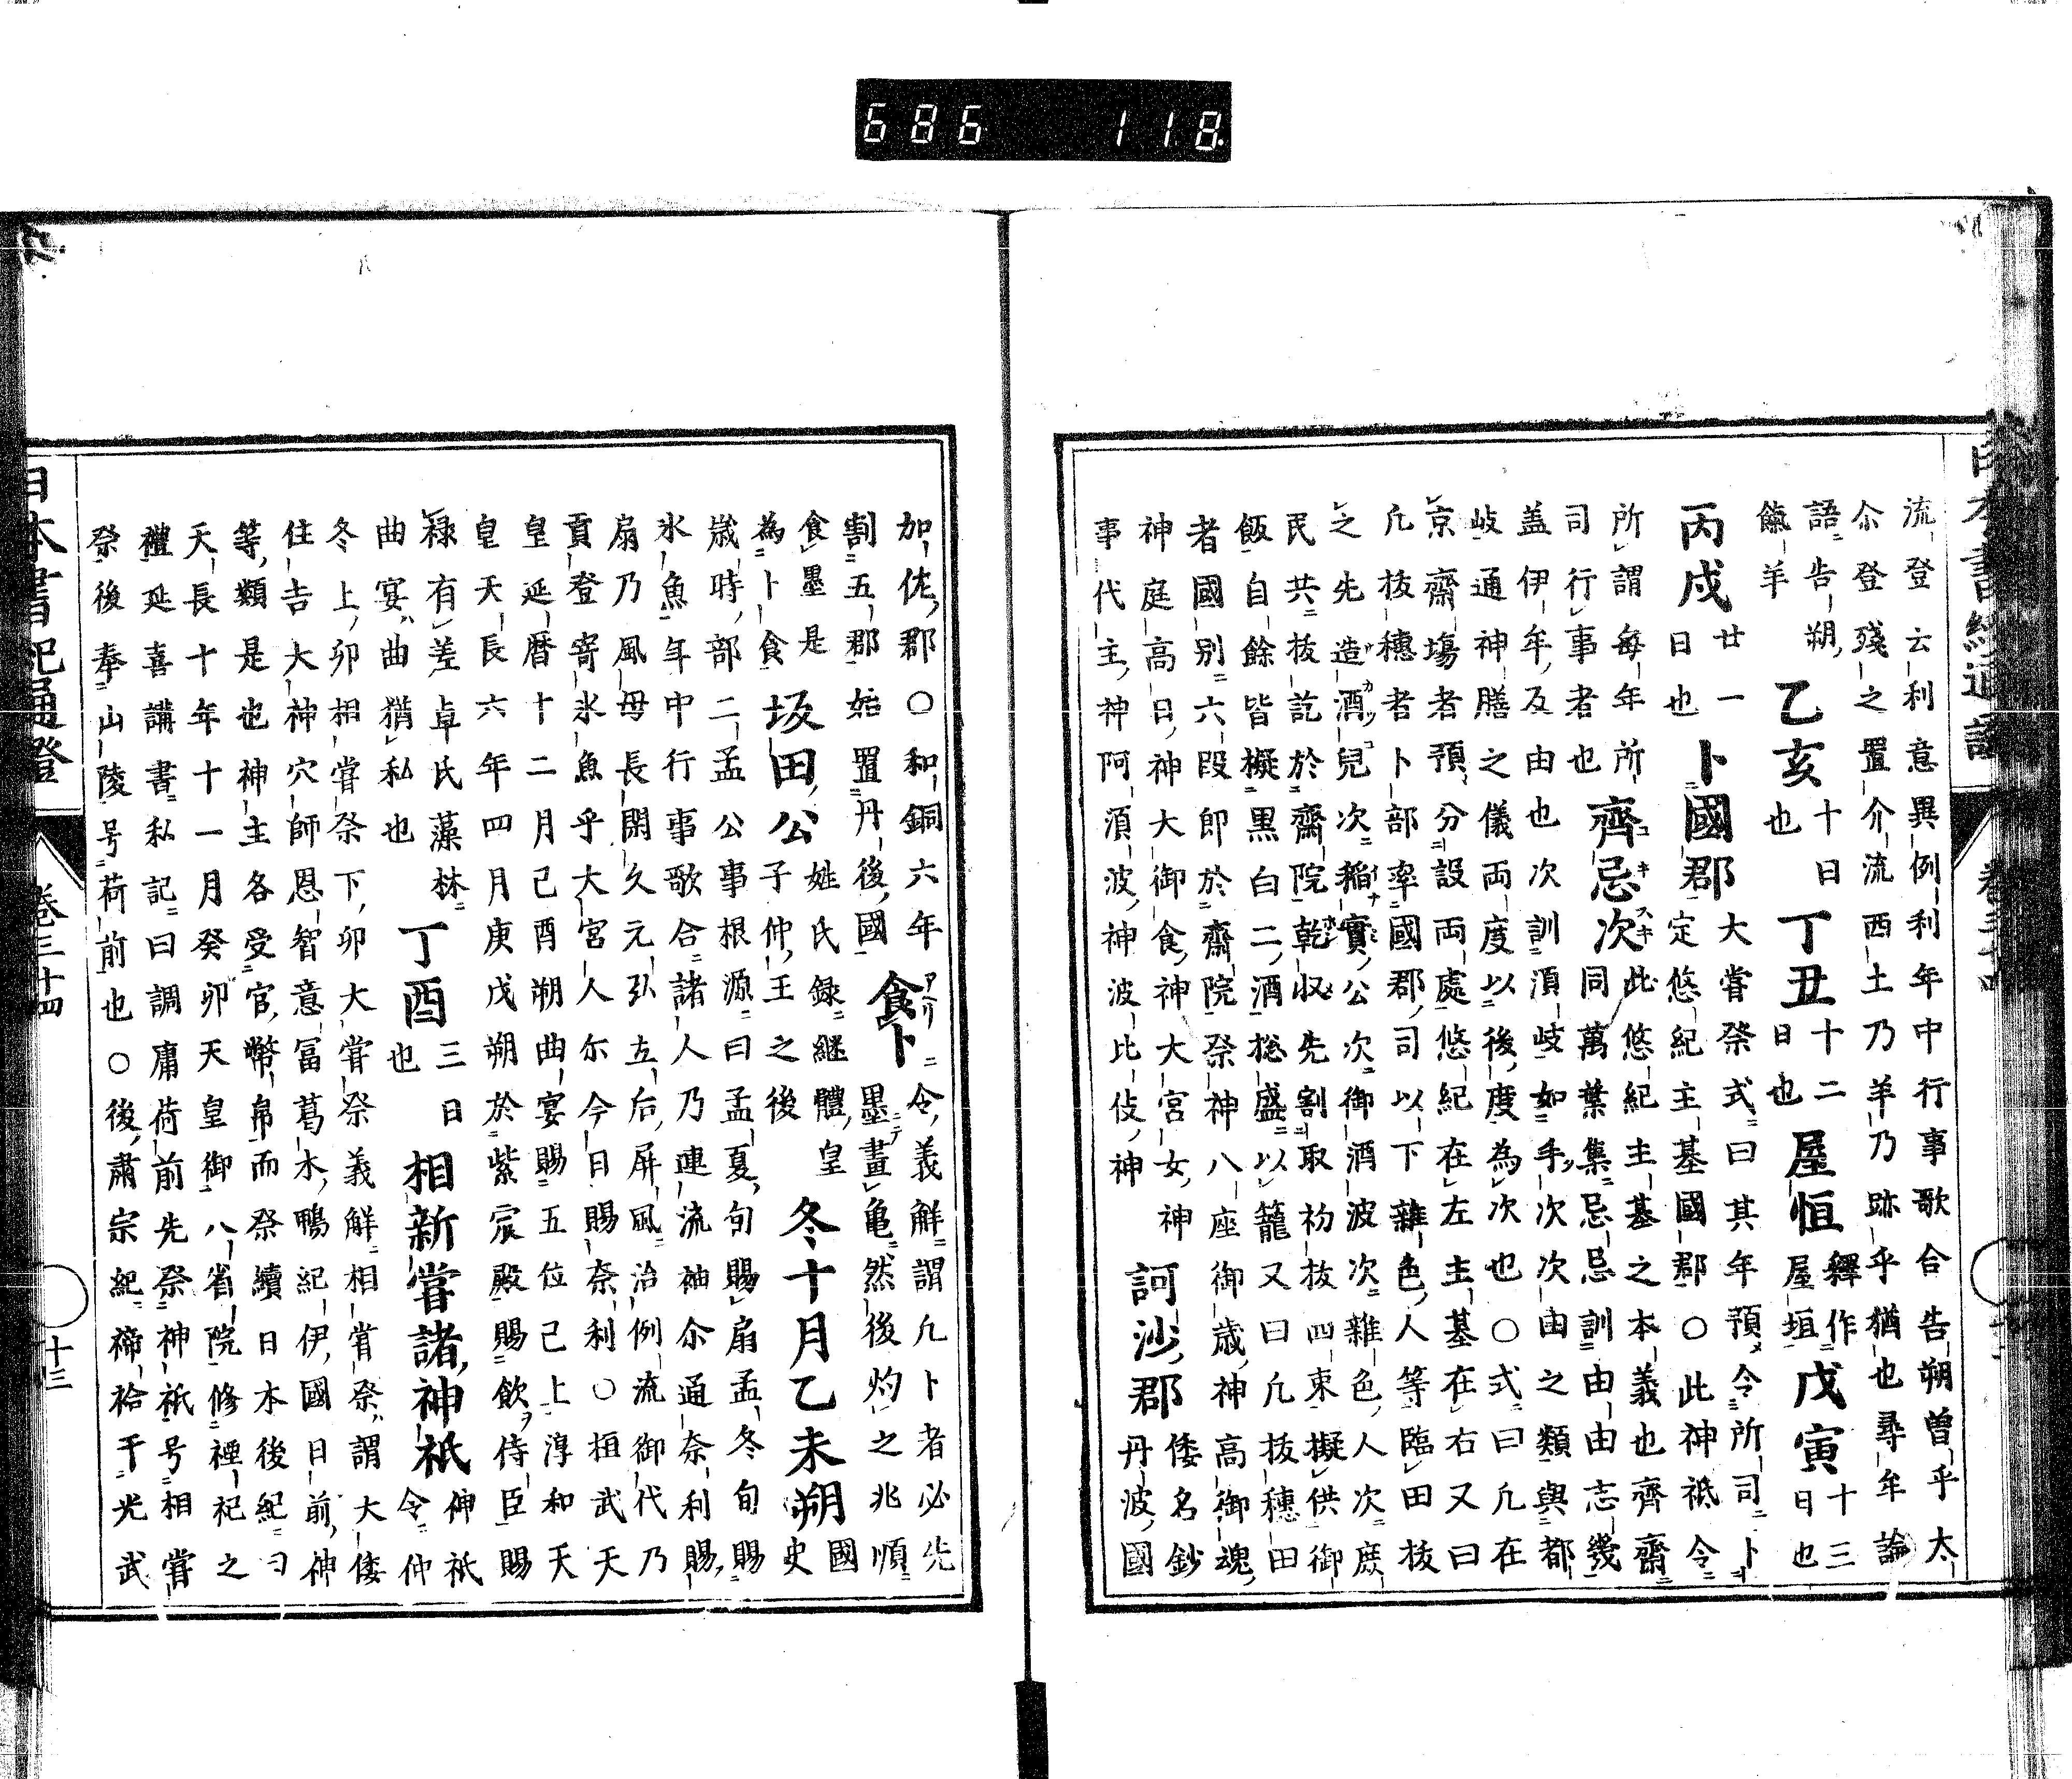 686 118
流登云利意異例利年中行事歌合告朔曽乎太
尒登殘之置介流西土乃羊乃跡乎猶也尋牟論
語告朔
餼羊
乙亥
十日
也
丁丑
十二
日也
屋恒
釋作
屋垣
戊寅
十三
日也
丙戌
廿一
日也
卜國郡
大嘗祭式曰其年預令所司卜
定悠紀主基國郡○此神祇令
所謂毎年所
司行事者也
齊忌次
此悠紀主基之本義也齊齋
同萬葉集忌忌訓由由志幾
蓋伊牟及由也次訓湏岐如手次次由之類與都
岐通神膳之儀両度以後度為次也○式曰凡在
京齋塲者預分設両處悠紀在左主基在右又曰
凡抜穗者卜部率國郡司以下雜色人等臨田抜
之先造酒兒次稲實公次御酒波次雜色人次庶
民共抜訖於齋院乾収先割取初抜四束擬供御
飯自餘皆擬黒白二酒捴盛以籠又曰凡抜穗田
者國別六段即於齋院祭神八座御歳神高御魂
神庭高日神大御食神大宮女神
事代主神阿湏波神波比伎神
訶沙郡
倭名鈔
丹波國
加佐郡○和銅六年
割五郡始置丹後國
食卜
令義解謂凡卜者必先
墨畫亀然後灼之兆順
食墨是
為卜食
坂田公
姓氏録継體皇
子仲王之後
冬十月乙未朔
國
史
歳時部二孟公事根源曰孟夏旬賜扇孟冬旬賜
氷魚年中行事歌合諸人乃連流袖尒通奈利賜
扇乃風毋長閑久元弘立后屏風治例流御代乃
貢登寄氷魚乎大宮人尓今日賜奈利○桓武天
皇延暦十二月己酉朔曲宴賜五位己上淳和天
皇天長六年四月庚戊朔於紫宸殿賜飲侍臣賜
禄有差卓氏藻林
曲宴曲猶私也
丁酉
三日
也
相新嘗諸神祇
神祇
令仲
冬上卯相嘗祭下卯大嘗祭義解相嘗祭謂大倭
住吉大神穴師恩智意冨葛木鴨紀伊國日前神
等類是也神主各受官幣帛而祭續日本後紀曰
天長十年十一月癸卯天皇御八省院修禋祀之
禮延喜講書私記曰調庸荷前先祭神祇号相嘗
祭後奉山陵号荷前也○後肅宗紀禘祫于光武
日本書紀通證
卷三十四
十三